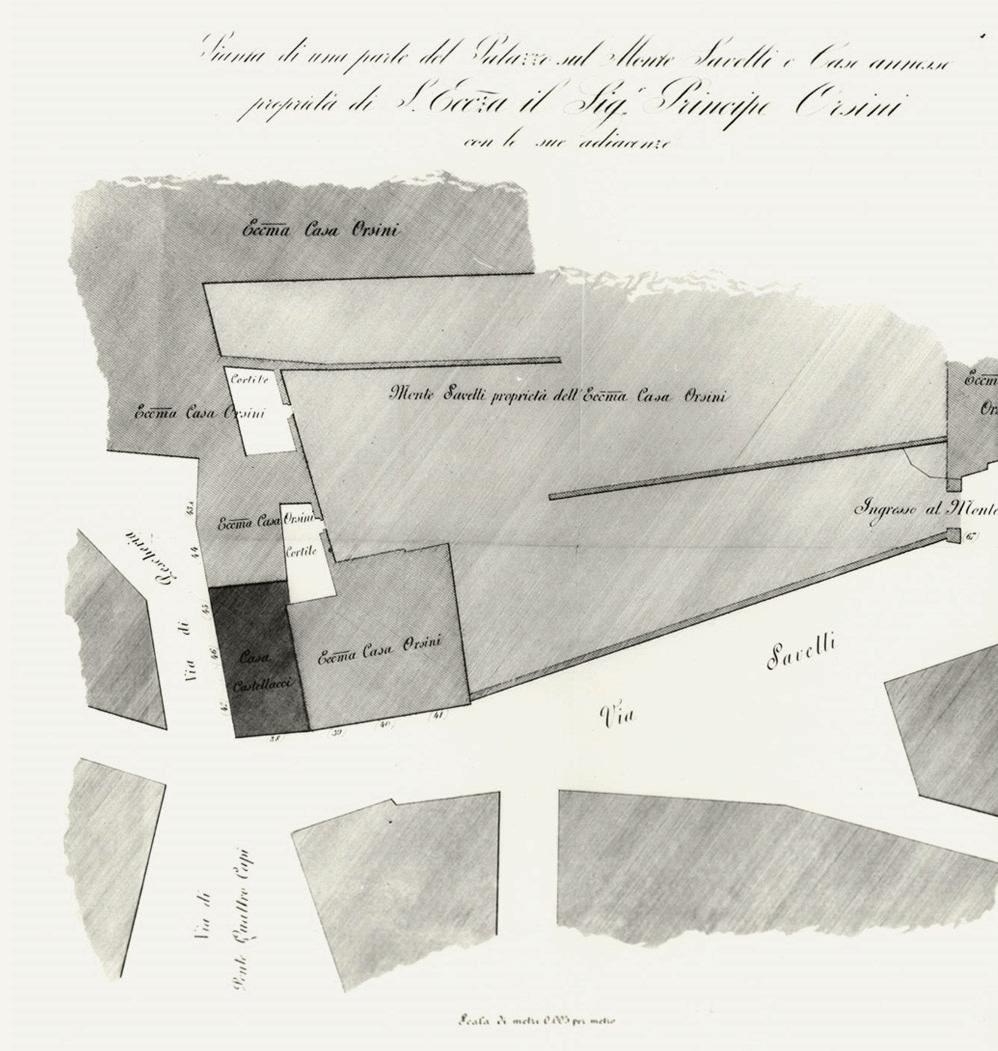 Pianta di una parte del Palazzo sul Monte Savelli e Case annesse
proprietà di S. Eccza il Sigr. Principe Orsini
con le sue adiacenze
Eccma Casa Orsini
Cortile
Eccma Casa Orsini
Monte Savelli proprietà dell'Eccma Casa Orsini
Eccma
Or
Eccma Casa Orsini
Cortile
Ingresso al Monte
67
Via di Pescheria
43A
44
45
46
47
Casa
Castellacci
Eccma Casa Orsini
38
39
40
41
Via Savelli
Via di
Ponte Quattro Capi
Scala di metri 0.005 per metro